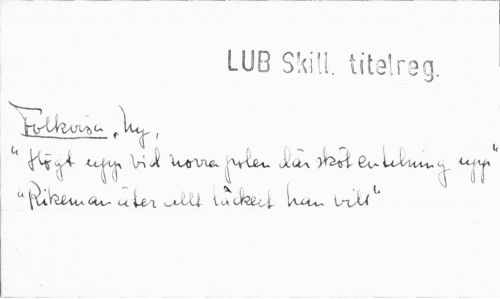 LUB Skill. titelreg.
Folkvisa, Ny,
"Högt upp vid norra polen där sköt en telning upp"
"Rikeman äter allt läckert han vill"